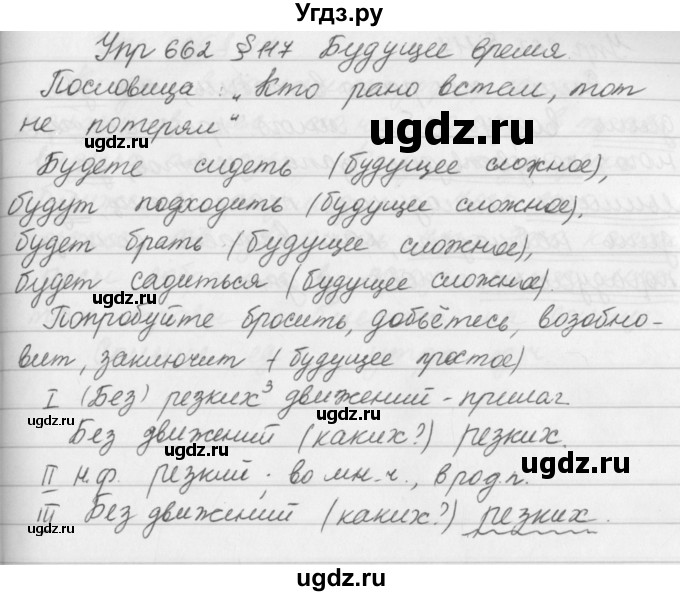 Угдз.ру
Упр 662 § 117 Будущее время
Пословица: „Кто рано встал, тот
не потерял“
ugdz.ru
Будете сидеть (будущее сложное),
будут подходить (будущее сложное),
будет брать (будущее сложное),
будет садиться (будущее сложное)
ugdz.ru
Попробуйте бросить, добьётесь, возобно-
вит, заключит (будущее простое)
I (Без) резких³ движений - прилаг.
ugdz.ru
ugdz.ru
Без движений (каких?) резких.
ugdz.ru
II н.ф. резкий; во мн.ч., в род.п.
III Без движений (каких?) резких.
ugdz.ru
ugdz.ru
ugdz.ru